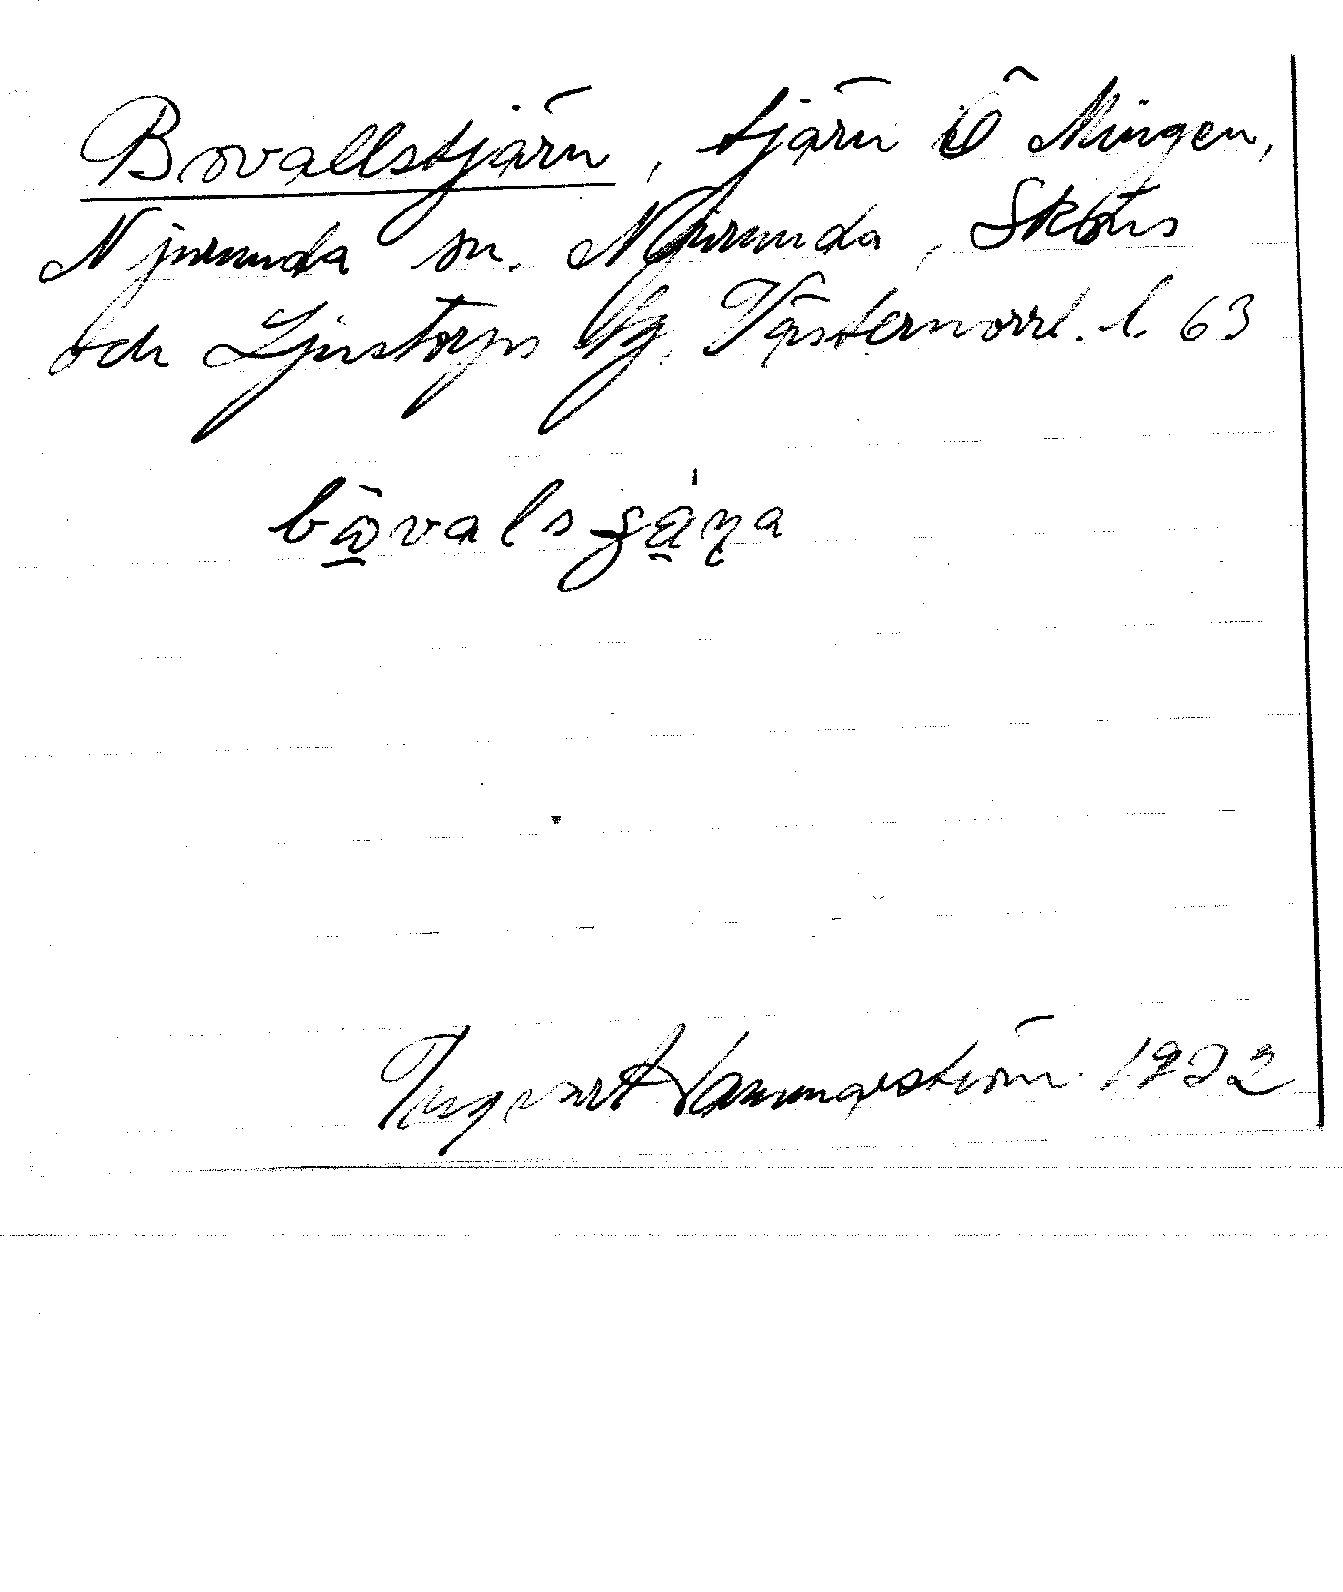 Bovallstjärn, tjärn Ö Mingen,
Njurunda sn. Njurunda, Sköns
och Ljustorps tg. Västernorrl. l. 63
bωvalsgạ̈ṇa
Ingvart 1922